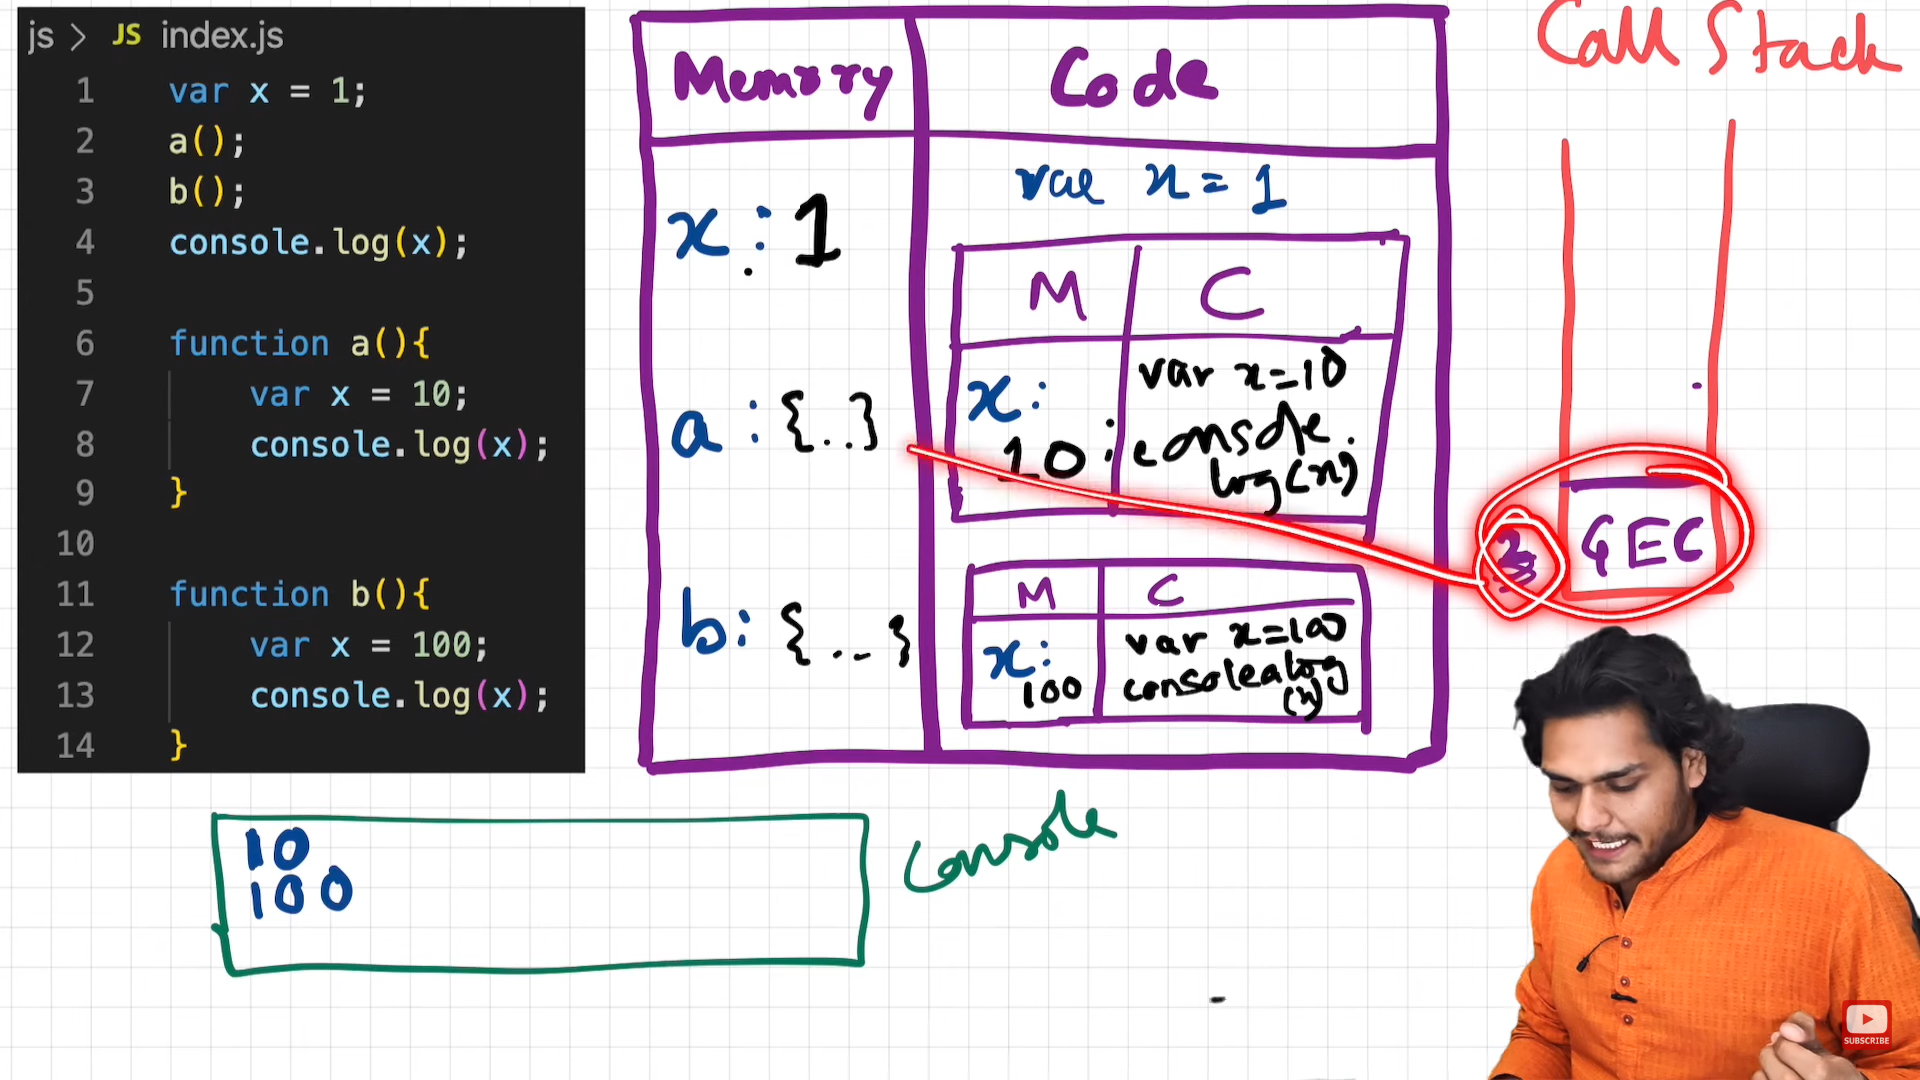 js > JS index.js
1 var x = 1;
2 a();
3 b();
4 console.log(x);
5
6 function a(){
7 var x = 10;
8 console.log(x);
9 }
10
11 function b(){
12 var x = 100;
13 console.log(x);
14 }
Memory
Code
x : 1
var x = 1
M
C
x:
10
var x=10
console.
log(x)
a : {..}
b: {..}
M
C
x:
100
var x=100
console.log
(x)
Call Stack
GEC
10
100
Console
SUBSCRIBE